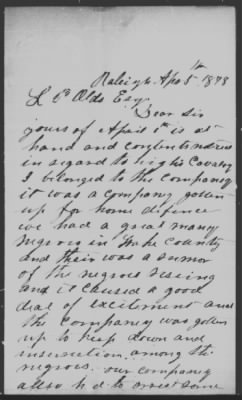 Raleigh Apr 8th 1878
L Olds Esq
Dear Sir
yours of April 6th is at
hand and contents noticed
in regard to
I belonged to the company
it was a company gotten
up for home defence
we had a great many
negroes in Wake County
and their was a rumor
of the negroes riseing
and it caused a good
deal of excitement and
the company was gotten
up to keep down and
insurection among the
negroes. our company
allso had to arrest some